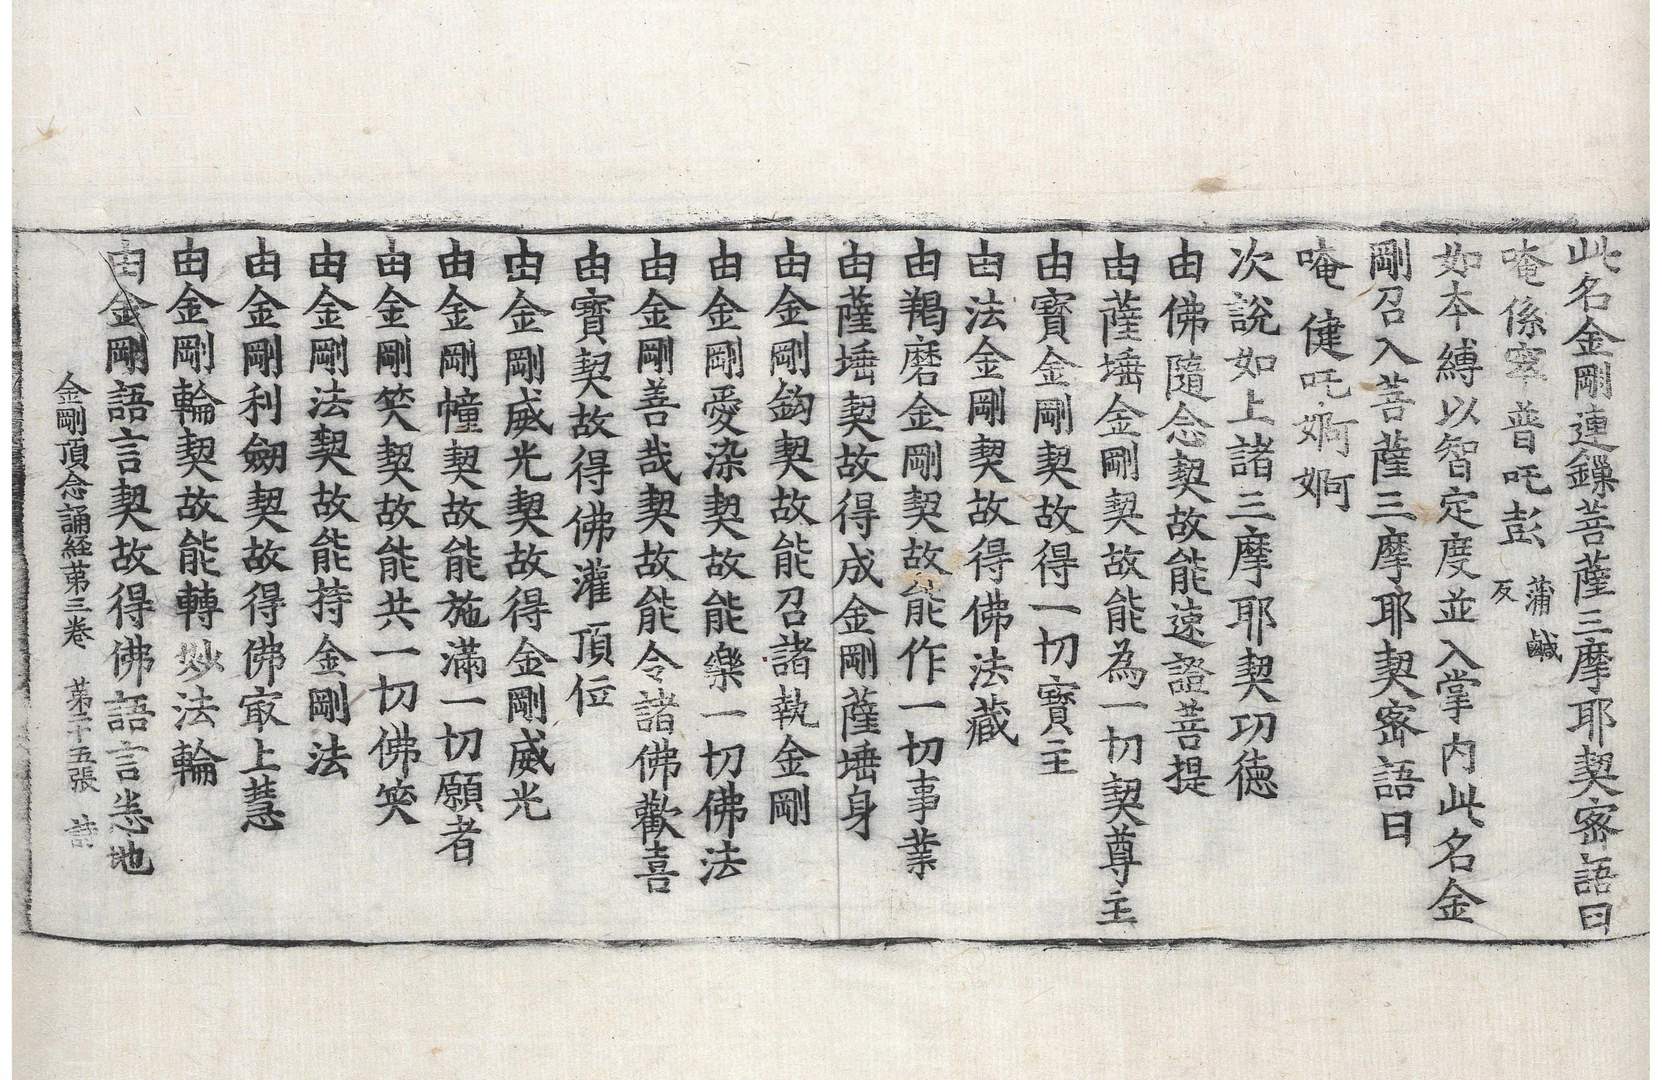 此名金剛連鏁菩薩三摩耶契密語曰
唵係窣普吒彭 蒲鹹反
如本縛以智定度並入掌內此名金
剛召入菩薩三摩耶契密語曰
唵健吒婀婀
次說如上諸三摩耶契功德
由佛隨念契故能速證菩提
由薩埵金剛契故能為一切契尊主
由寶金剛契故得一切寶主
由法金剛契故得佛法藏
由羯磨金剛契故能作一切事業
由薩埵契故得成金剛薩埵身
由金剛鈎契故能召諸執金剛
由金剛愛染契故能樂一切佛法
由金剛善哉契故能令諸佛歡喜
由寶契故得佛灌頂位
由金剛威光契故得金剛威光
由金剛幢契故能施滿一切願者
由金剛笑契故能共一切佛笑
由金剛法契故能持金剛法
由金剛利劔契故得佛㝡上慧
由金剛輪契故能轉妙法輪
由金剛語言契故得佛語言悉地
金剛頂念誦経苐三卷 苐二十五張 詩